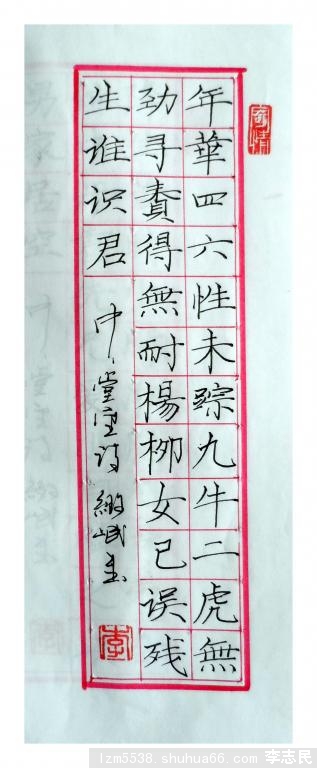 年華四六性未琮九牛二虎無
劲寻責得無耐楊柳女已误残
生谁识君
中堂主诗
李
lzm5538.shuhua66.com 李志民